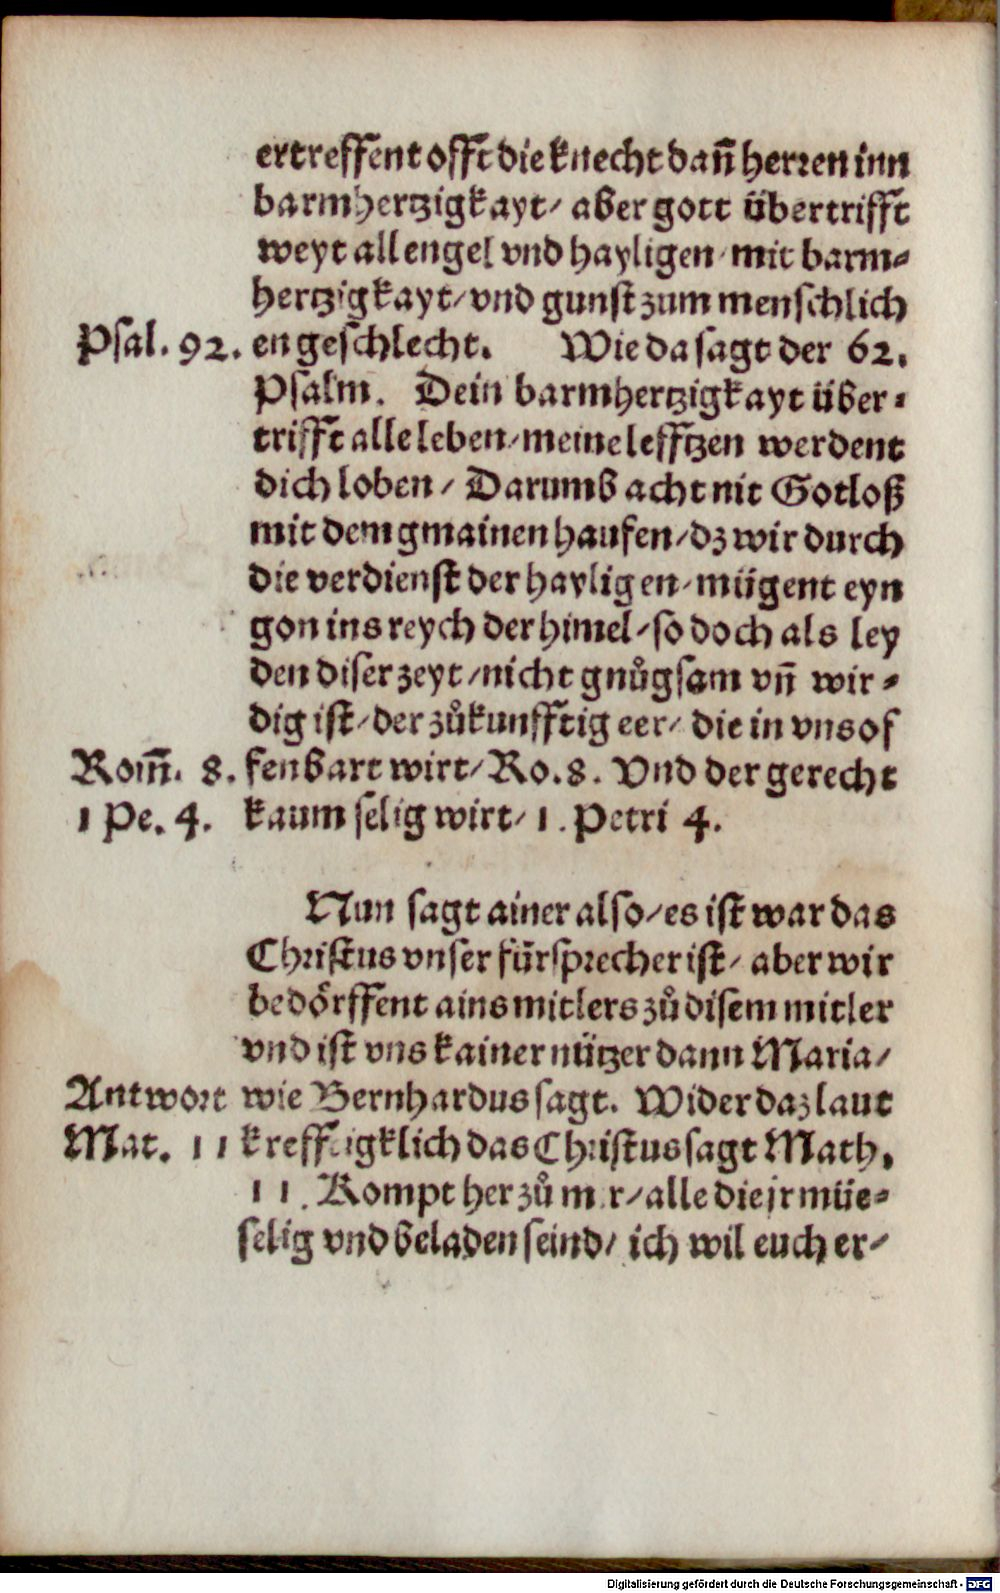 ertreffent offt die knecht dañ herren inn
barmhertzigkayt/ aber gott übertrifft
weyt all engel vnd hayligen/ mit barm-
hertzigkayt/ vnd gunst zum menschlich
Psal. 92. en geschlecht. Wie da sagt der 62.
Psalm. Dein barmhertzigkayt über-
trifft alle leben/ meine lefftzen werdent
dich loben/ Darumb acht nit Gotloß
mit dem gmainen haufen/ dz wir durch
die verdienst der hayligen/ mügent eyn
gon ins reych der himel/ so doch als ley
den diser zeyt/ nicht gnůgsam vñ wir-
dig ist/ der zůkunfftig eer/ die in vns of
Rom̃. 8. fenbart wirt/ Ro. 8. Vnd der gerecht
1 Pe. 4. kaum selig wirt/ 1. Petri 4.
Nun sagt ainer also/ es ist war das
Christus vnser fürsprecher ist/ aber wir
bedörffent ains mitlers zů disem mitler
vnd ist vns kainer nützer dann Maria/
Antwort wie Bernhardus sagt. Wider daz laut
Mat. 11 krefftigklich das Christus sagt Math.
11. Kompt her zů mir/ alle die jr müe-
selig vnd beladen seind/ ich wil euch er-
Digitalisierung gefördert durch die Deutsche Forschungsgemeinschaft - DFG